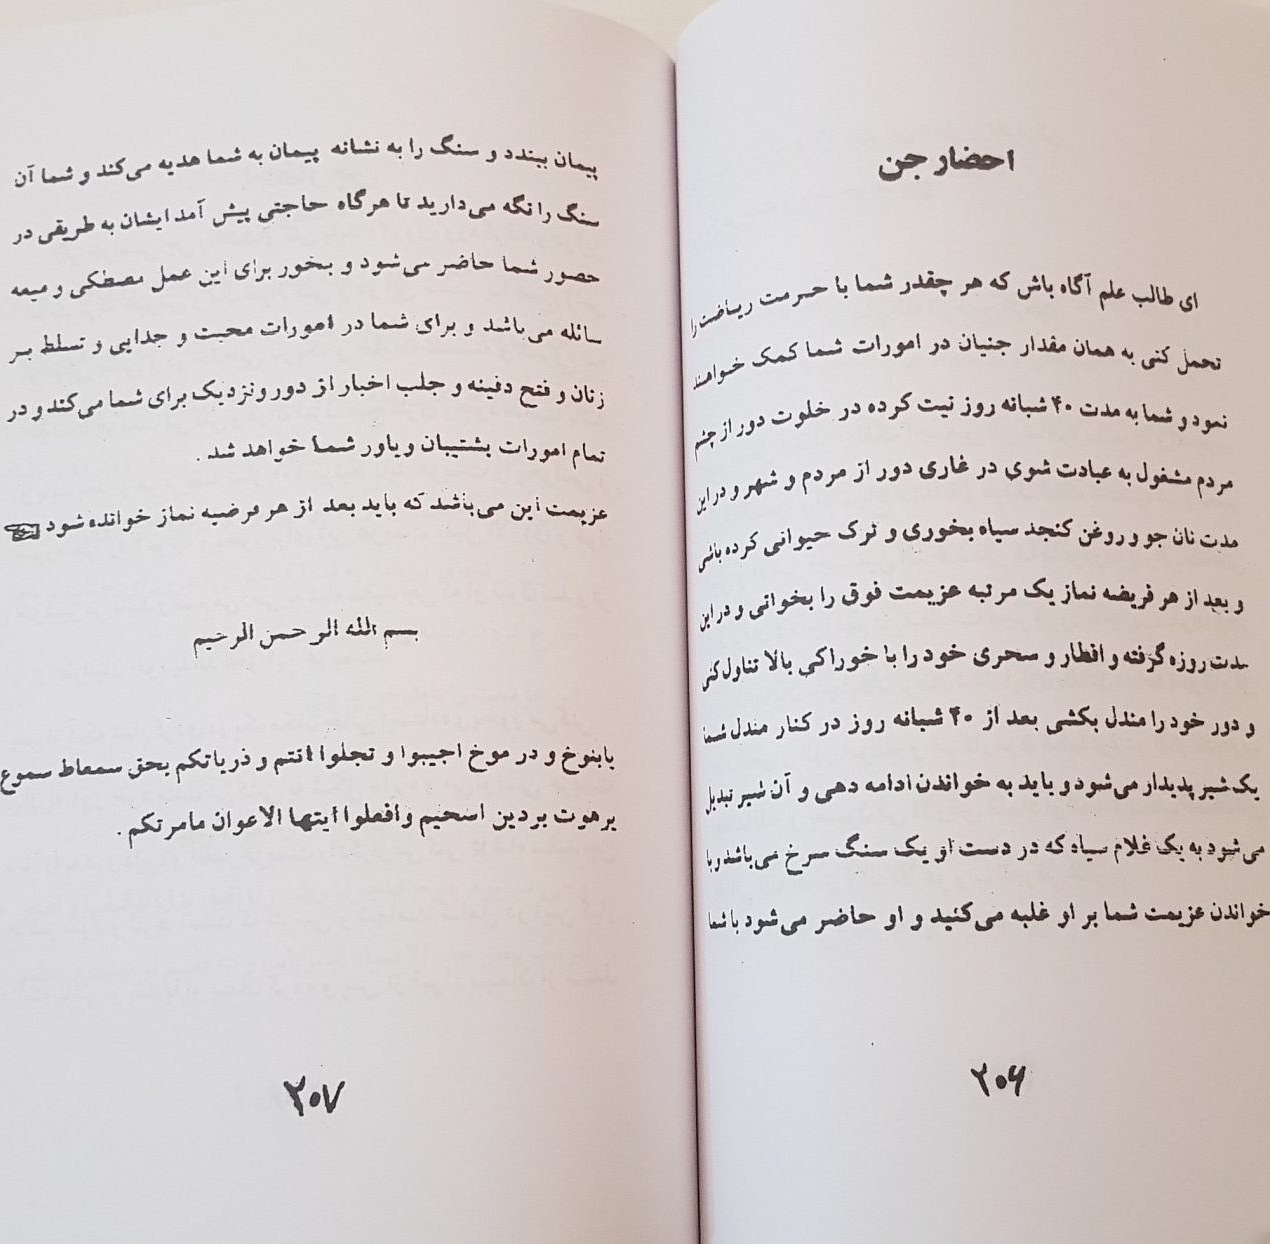 احضار جن
ای طالب علم آگاه باش که هر چقدر شما با حرمت ریاضت را
تحمل کنی به همان مقدار جنیان در امورات شما کمک خواهند
نمود و شما به مدت ۴۰ شبانه روز نیت کرده در خلوت دور از چشم
مردم مشغول به عبادت شوی در غاری دور از مردم و شهر و در این
مدت نان جو و روغن کنجد سیاه بخوری و ترک حیوانی کرده باشی
و بعد از هر فریضه نماز یک مرتبه عزیمت فوق را بخوانی و در این
مدت روزه گرفته و افطار و سحری خود را با خوراکی بالا تناول کنی
و دور خود را مندل بکشی بعد از ۴۰ شبانه روز در کنار مندل شما
یک شیر پدیدار می‌شود و باید به خواندن ادامه دهی و آن شیر تبدیل
می‌شود به یک غلام سیاه که در دست او یک سنگ سرخ می‌باشد و با
خواندن عزیمت شما بر او غلبه می‌کنید و او حاضر می‌شود با شما
۲۰۶
پیمان ببندد و سنگ را به نشانه پیمان به شما هدیه می‌کند و شما آن
سنگ را نگه می‌دارید تا هرگاه حاجتی پیش آمد ایشان به طریقی در
حضور شما حاضر می‌شود و بخور برای این عمل مصطکی و میعه
سائله می‌باشد و برای شما در امورات محبت و جدایی و تسلط بر
زنان و فتح دفینه و جلب اخبار از دور و نزدیک برای شما می‌کند و در
تمام امورات پشتیبان و یاور شما خواهد شد .
عزیمت این می‌باشد که باید بعد از هر فرضیه نماز خوانده شود
بسم الله الرحمن الرحیم
یابنوخ و در موخ اجیبوا و تجلوا انتم و ذریاتکم بحق سمعاط سموع
برهوت بردین اسحیم وافعلوا ایتها الاعوان مامرتکم .
۲۰۷